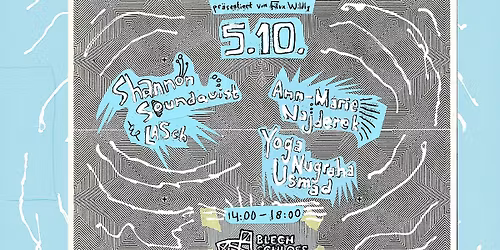 präsentiert von
5.10.
Shannon
Soundquist
& LASch
Ann-Marie
Najderek
Yoga
Nugraha
Usmad
14:00 - 18:00
BLECH